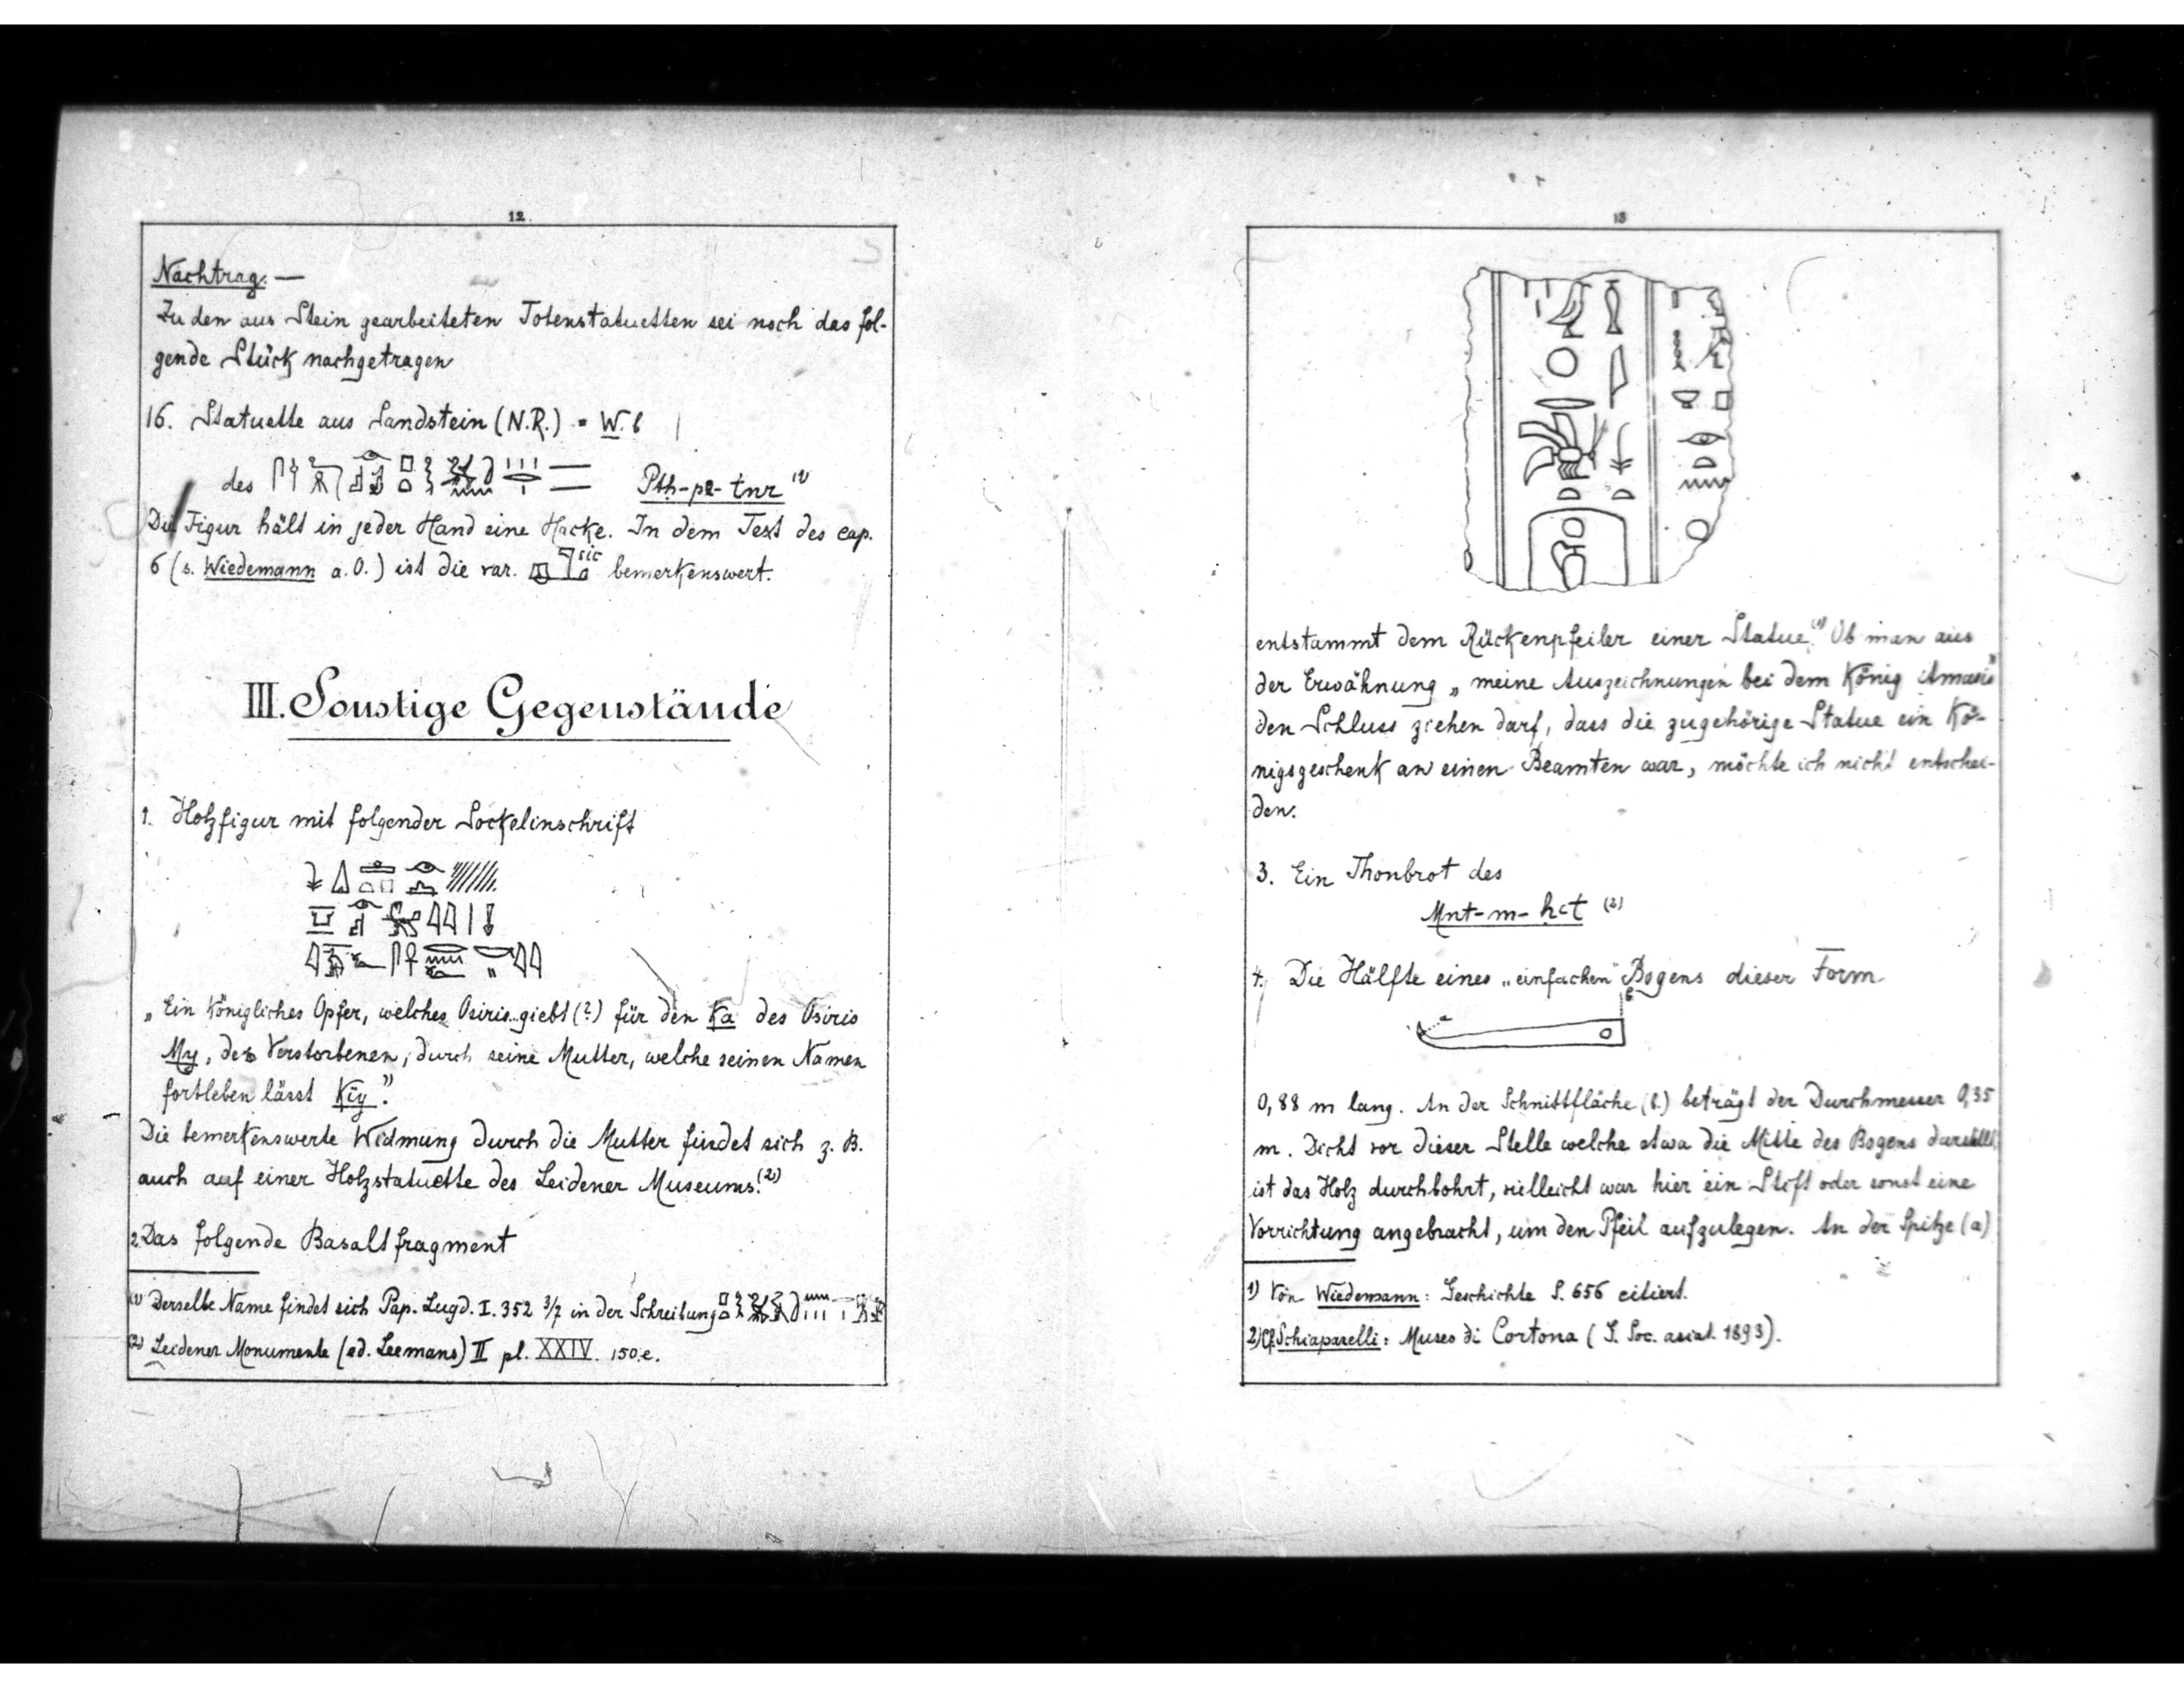 12.
Nachtrag. —
Zu den aus Stein gearbeiteten Totenstatuetten sei noch das fol-
gende Stück nachgetragen
16. Statuette aus Sandstein (N.R.) = W. 6
des Ptḥ-pꜣ-tnr (1)
Die Figur hält in jeder Hand eine Hacke. In dem Text des cap.
6 (s. Wiedemann a.O.) ist die var. sic bemerkenswert.
III. Sonstige Gegenstände
1. Holzfigur mit folgender Sockelinschrift
„Ein königliches Opfer, welches Osiris giebt (?) für den Ka des Osiris
My, des Verstorbenen, durch seine Mutter, welche seinen Namen
fortleben lässt Kiy."
Die bemerkenswerte Widmung durch die Mutter findet sich z. B.
auch auf einer Holzstatuette des Leidener Museums.(2)
2. Das folgende Basaltfragment
(1) Derselbe Name findet sich Pap. Lugd. I. 352 3/7 in der Schreibung
(2) Leidener Monumente (ed. Leemans) II pl. XXIV. 150.e.
13
entstammt dem Rückenpfeiler einer Statue.(1) Ob man aus
der Erwähnung „meine Auszeichnungen bei dem König Amasis"
den Schluss ziehen darf, dass die zugehörige Statue ein Kö-
nigsgeschenk an einen Beamten war, möchte ich nicht entschei-
den.
3. Ein Thonbrot des
Mnt-m-ḥct (2)
4. Die Hälfte eines „einfachen" Bogens dieser Form
a
b
0,88 m lang. An der Schnittfläche (b.) beträgt der Durchmesser 0,35
m. Dicht vor dieser Stelle welche etwa die Mitte des Bogens darstellt,
ist das Holz durchbohrt, vielleicht war hier ein Stift oder sonst eine
Vorrichtung angebracht, um den Pfeil aufzulegen. An der Spitze (a)
1) Von Wiedemann: Geschichte S. 656 citiert.
2) Cf. Schiaparelli: Museo di Cortona (S. Soc. asiat. 1893).